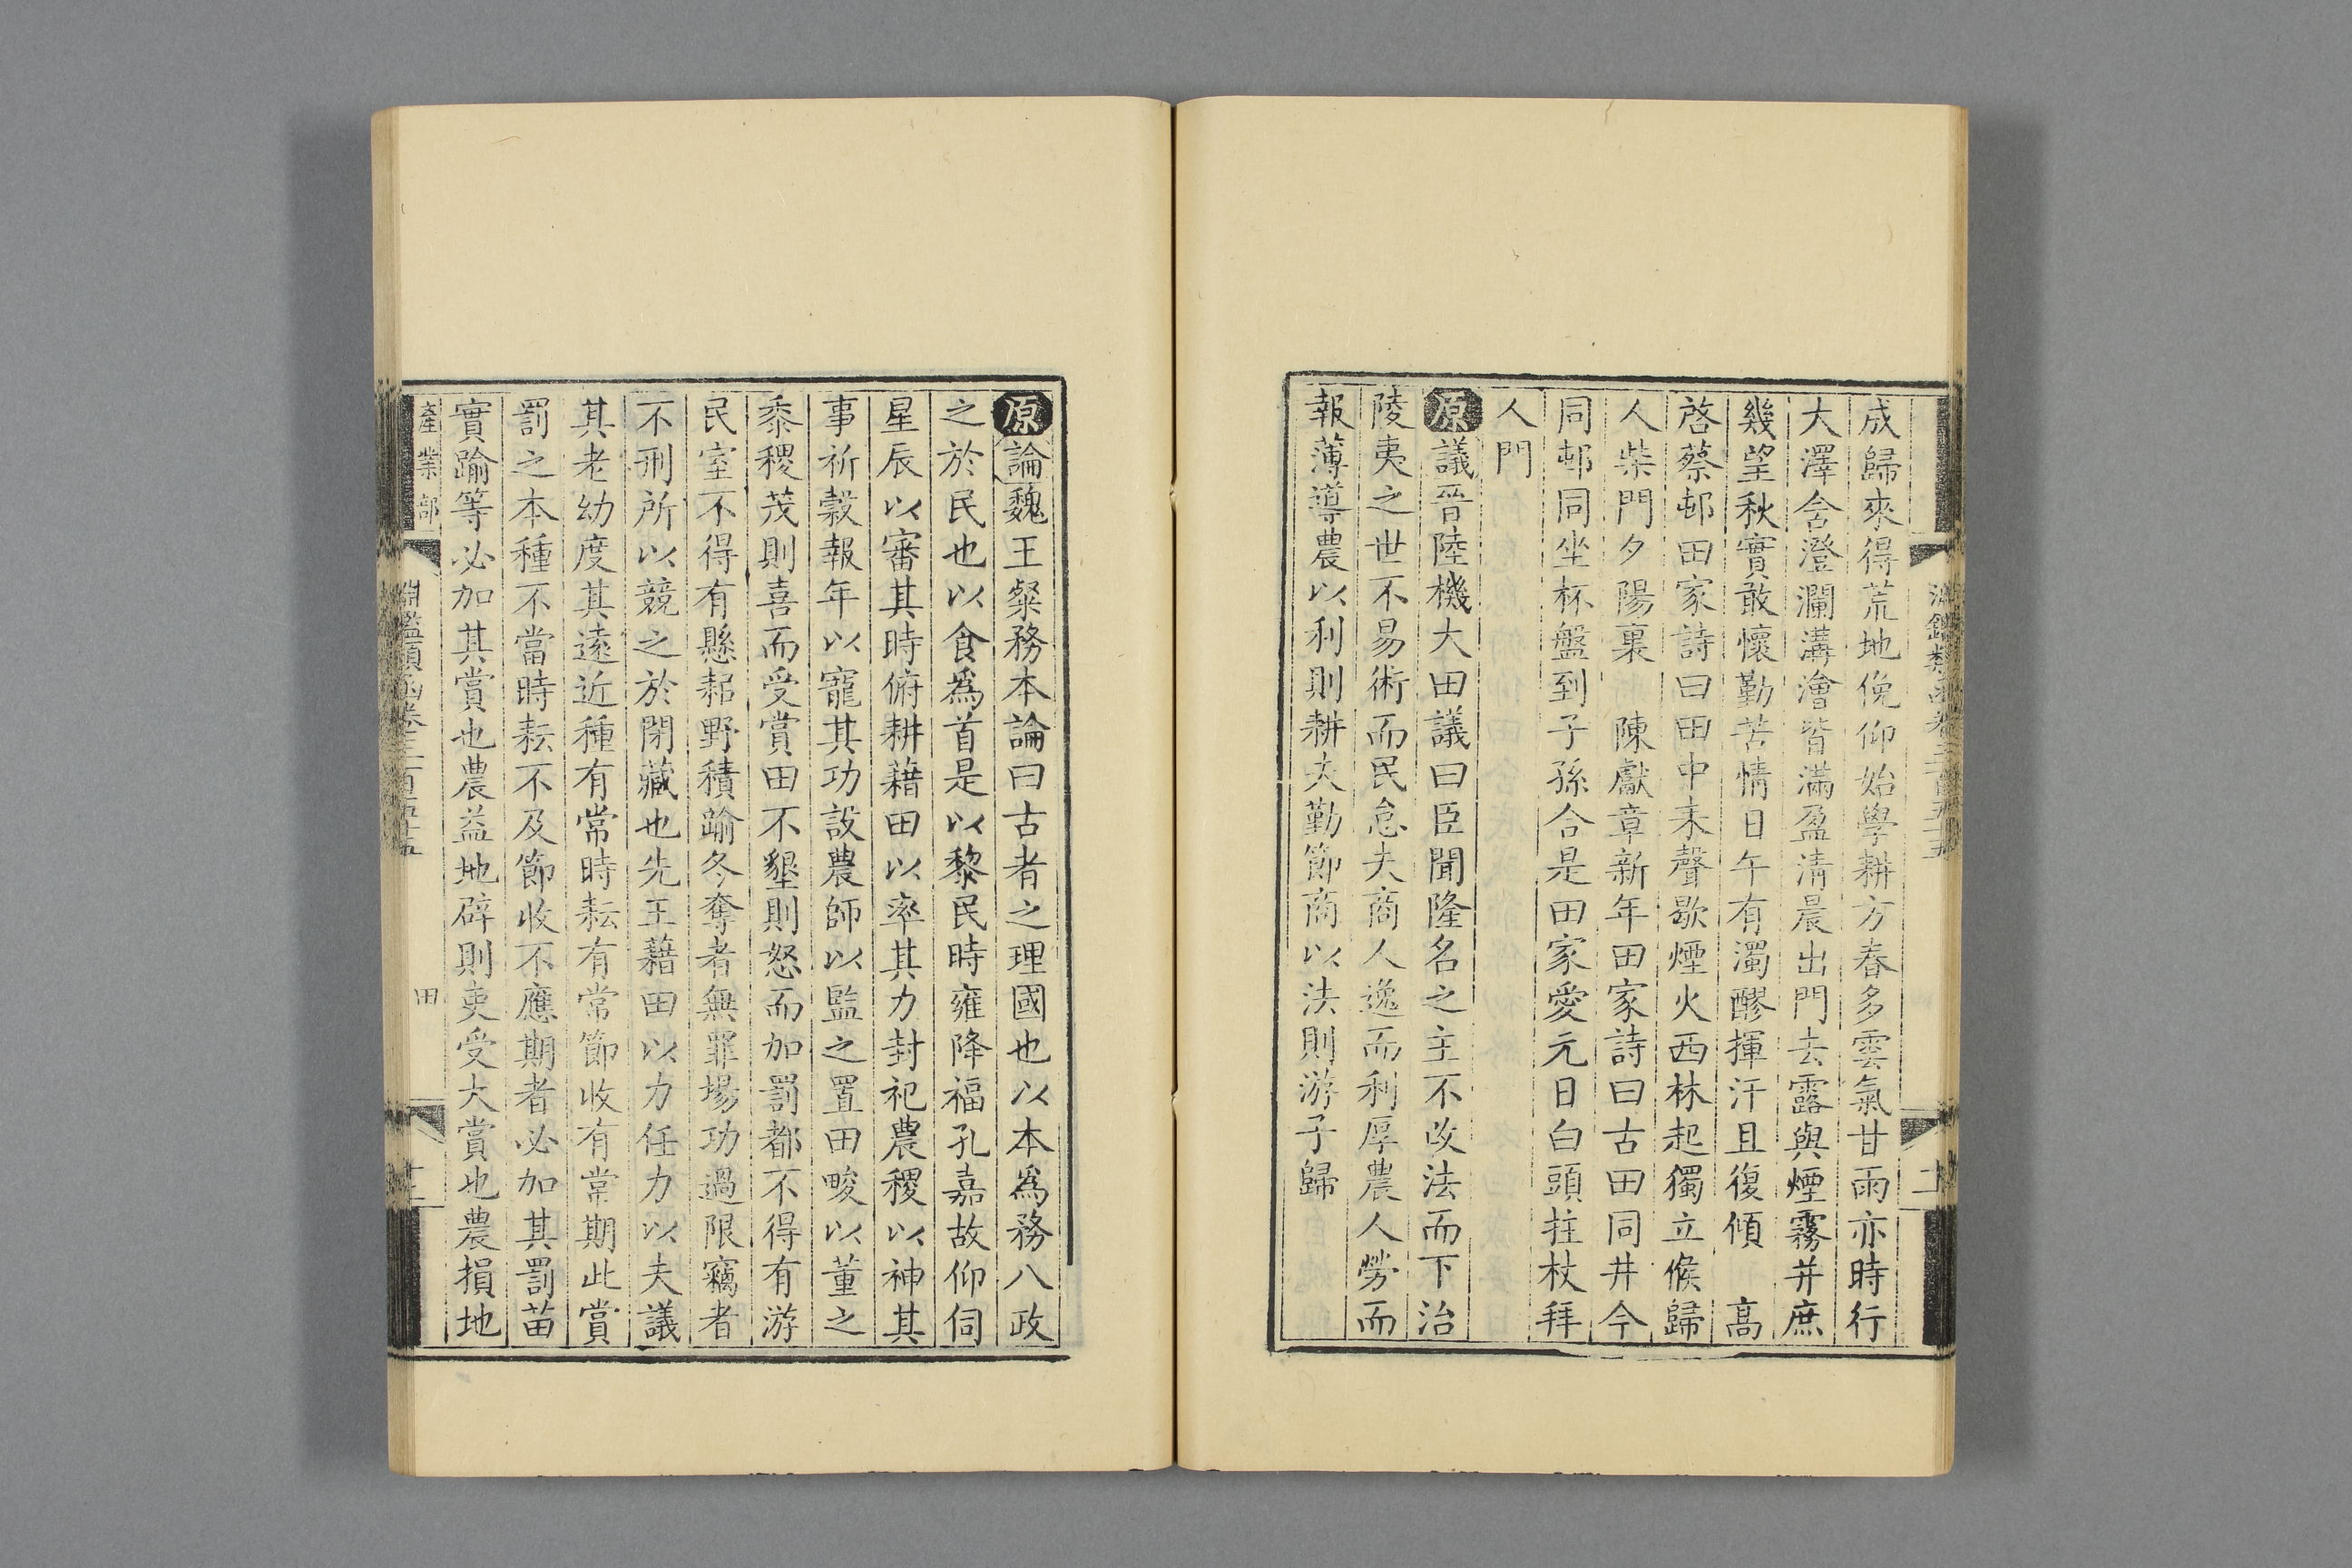 成歸來得荒地俛仰始學耕方春多雲氣甘雨亦時行
大澤含澄瀾溝澮皆滿盈清晨出門去露與煙霧并庶
幾望秋實敢懷勤苦情日午有濁醪揮汗且復傾　高
啓蔡邨田家詩曰田中耒聲歇煙火西林起獨立候歸
人柴門夕陽裏　陳獻章新年田家詩曰古田同井今
同邨同坐杯盤到子孫合是田家愛元日白頭拄杖拜
人門
原議晉陸機大田議曰臣聞隆名之主不改法而下治
陵夷之世不易術而民怠夫商人逸而利厚農人勞而
報薄導農以利則耕夫勤節商以法則游子歸
原論魏王粲務本論曰古者之理國也以本爲務八政
之於民也以食爲首是以黎民時雍降福孔嘉故仰伺
星辰以審其時俯耕藉田以率其力封祀農稷以神其
事祈穀報年以寵其功設農師以監之置田畯以董之
黍稷茂則喜而受賞田不墾則怒而加罰都不得有游
民室不得有懸耜野積踰冬奪者無罪場功過限竊者
不刑所以競之於閉藏也先王藉田以力任力以夫議
其老幼度其遠近種有常時耘有常節收有常期此賞
罰之本種不當時耘不及節收不應期者必加其罰苗
實踰等必加其賞也農益地辟則吏受大賞也農損地
產業部
淵鑑類函卷三百五十五
田